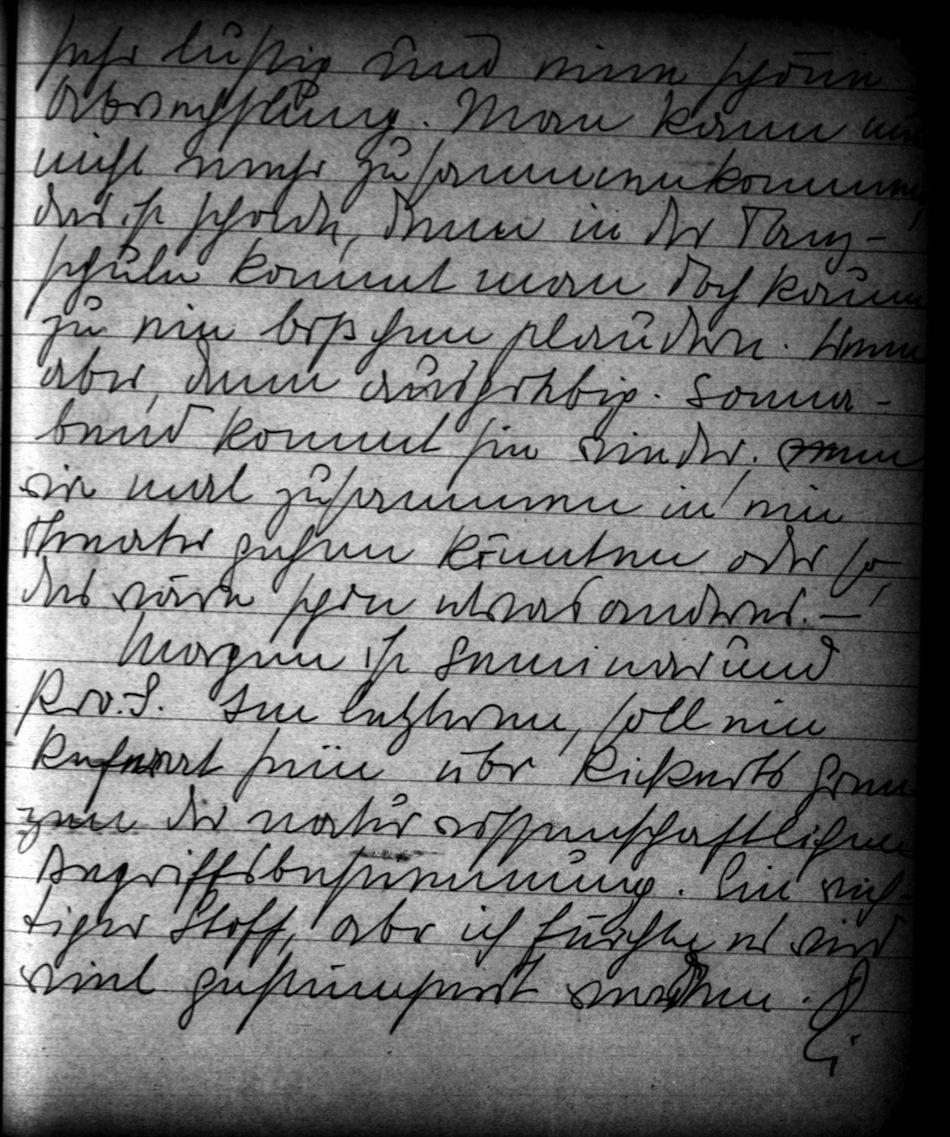 sehr lustig und eine schöne
Abwechslung. Man kann nur
nicht mehr zusammenkommen,
das ist schade, denn in der Tanz-
schule kommt man doch kaum
zu ein bißchen plaudern. Wenn
aber, dann ausgiebig. Sonna-
bend kommt sie wieder. wenn
wir mal zusammen in ein
Theater gehen könnten oder so,
das wäre schon etwas anderes. —
Morgen ist Seminar und
Pro.S. Im letzteren, soll ein
Referat sein über Rickerts Gren-
zen der naturwissenschaftlichen
Begriffsbestimmung. Ein wich-
tiger Stoff, aber ich fürchte es wird
viel geschimpft werden.